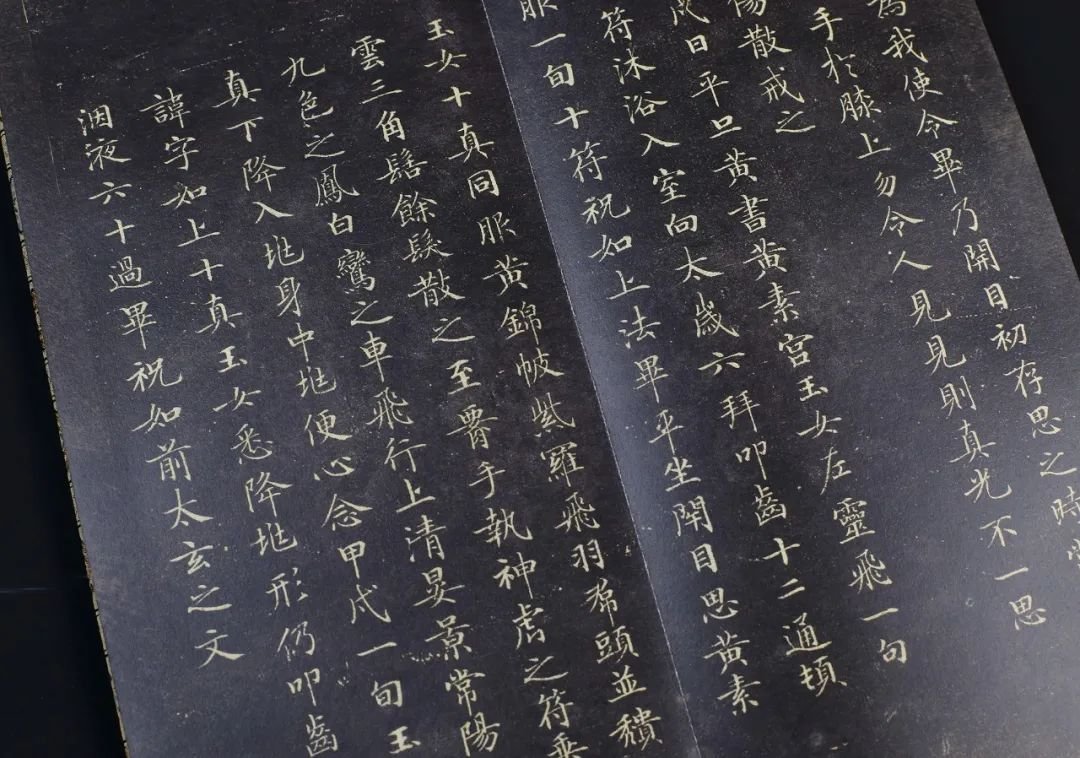 為我使令畢乃開目初存思之時常
手於膝上勿令人見見則真光不一思
陽散戒之
戌日平旦黃書黃素宮玉女左靈飛一旬
符沐浴入室向太歲六拜叩齒十二通頓
服一旬十符祝如上法畢平坐閉目思黃素
玉女十真同服黃錦帔紫羅飛羽帬頭並穨
雲三角髻餘髮散之至腰手執神虎之符乘
九色之鳳白鸞之車飛行上清晏景常陽
真下降入兆身中兆便心念甲戌一旬玉
諱字如上十真玉女悉降兆形仍叩齒
洇液六十過畢祝如前太玄之文